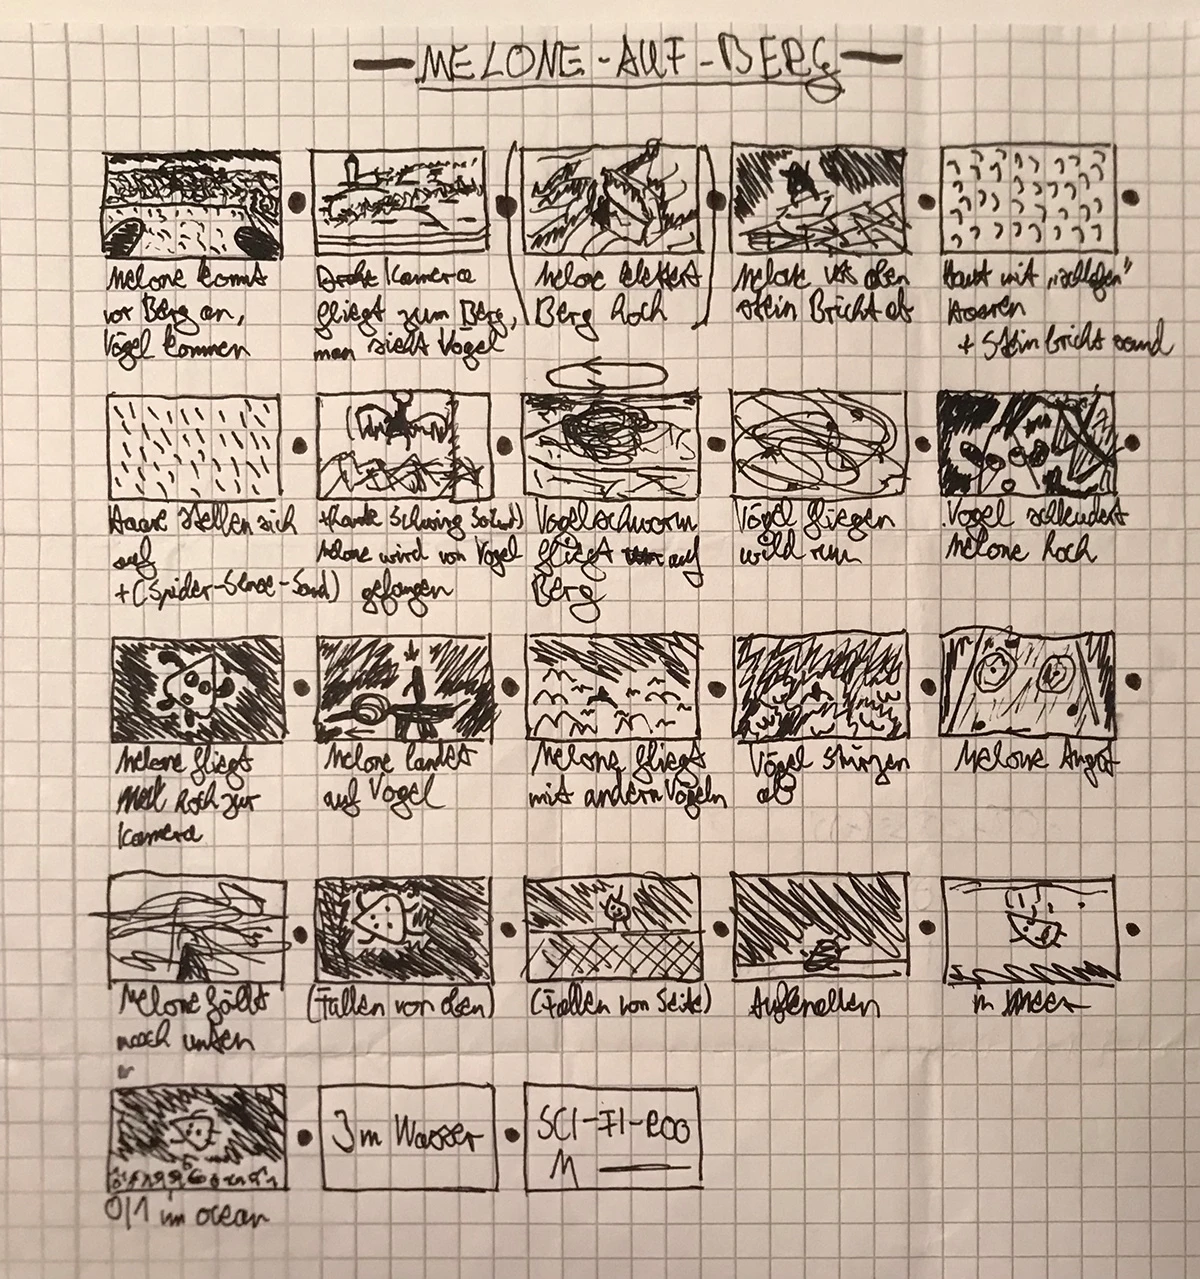 MELONE-AUF-BERG
Melone kommt
vor Berg an,
Vögel kommen
Kamera
fliegt zum Berg,
man sieht Vögel
Melone klettert
Berg hoch
Melone ist oben
Stein Bricht ab
Haut mit „schlafen"
Haaren
+ Stein bricht sound
Haare stellen sich
auf
+(Spider-Sense-Sound)
Melone wird von Vögel
gefangen
Vogelschwarm
fliegt auf
Berg
Vögel fliegen
wild rum
Vogel schleudert
Melone hoch
Melone fliegt
hoch zur
Kamera
Melone landet
auf Vogel
Melone fliegt
mit andern Vögeln
Vögel stürzen
ab
Melone Angst
Melone fällt
nach unten
(Fallen von oben)
(Fallen von Seite)
Aufknallen
im
0/1 im ocean
3m Wasser
SCI-FI-ROO
M